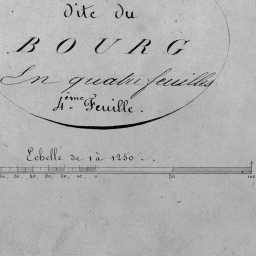 dite du
BOURG
En quatre feuilles
4ème Feuille.
Echelle de 1 à 1250.
50
100